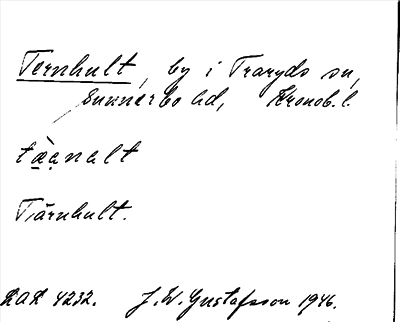 Ternhult, by i Traryds sn,
Sunnerbo hd, Kronob. l.
tæ̀ṇalt
Tärnhult.
RAÄ 4232. J. W. Gustafsson 1946.